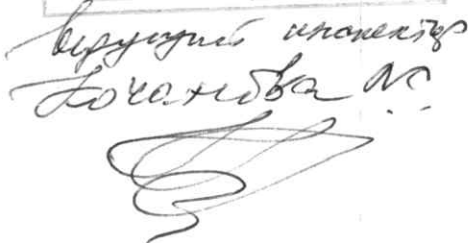 Ведущий инспектор
Кочанова М.